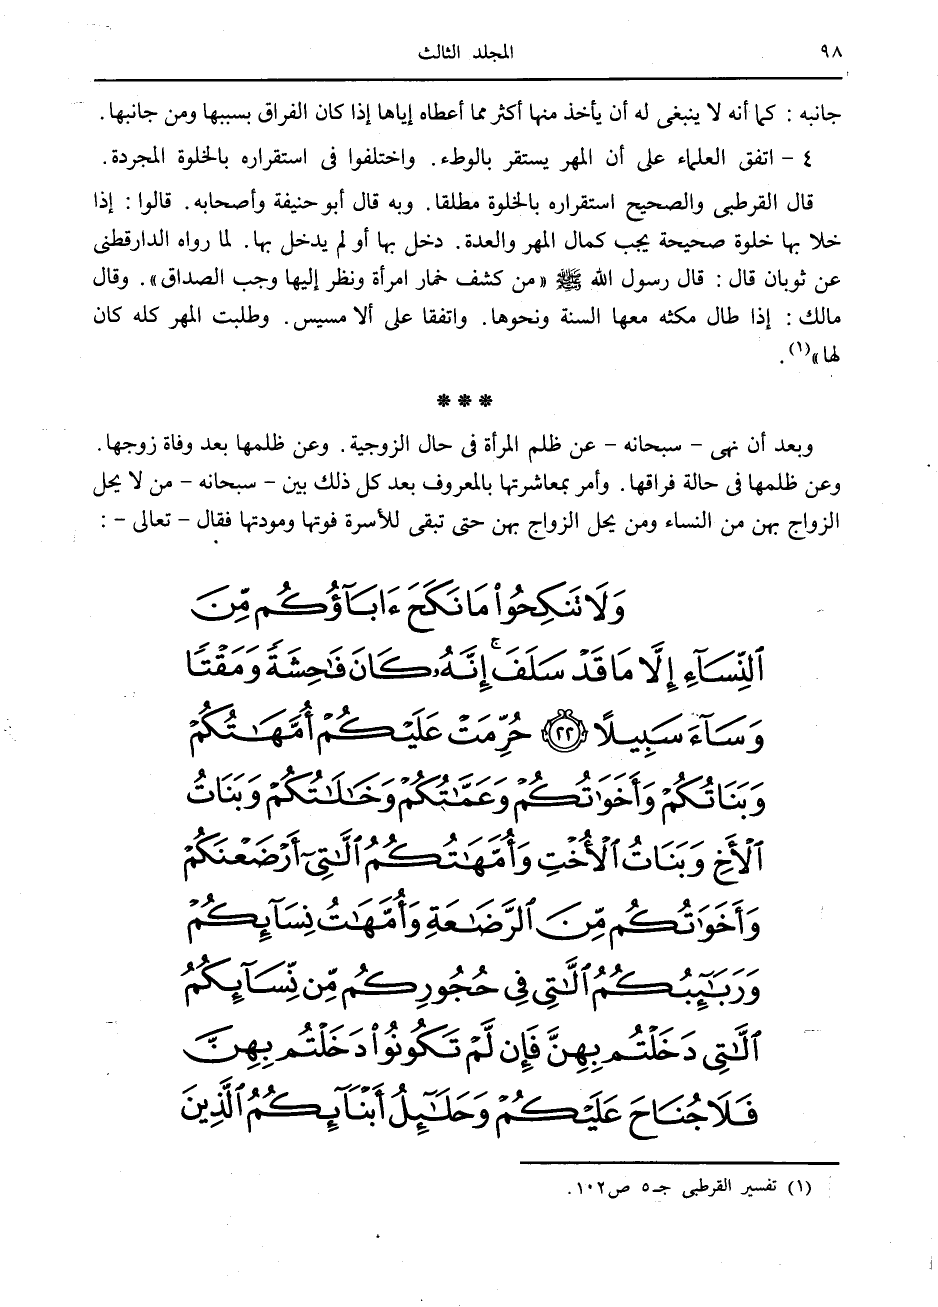 ٩٨
المجلد الثالث
جانبه : كما أنه لا ينبغى له أن يأخذ منها أكثر مما أعطاه إياها إذا كان الفراق بسببها ومن جانبها.
٤ - اتفق العلماء على أن المهر يستقر بالوطء. واختلفوا فى استقراره بالخلوة المجردة.
قال القرطبى والصحيح استقراره بالخلوة مطلقا. وبه قال أبو حنيفة وأصحابه. قالوا : إذا
خلا بها خلوة صحيحة يجب كمال المهر والعدة. دخل بها أو لم يدخل بها. لما رواه الدارقطنى
عن ثوبان قال : قال رسول الله ﷺ «من كشف خمار امرأة ونظر إليها وجب الصداق». وقال
مالك : إذا طال مكثه معها السنة ونحوها. واتفقا على ألا مسيس. وطلبت المهر كله كان
لها»(١).
***
وبعد أن نهى - سبحانه - عن ظلم المرأة فى حال الزوجية. وعن ظلمها بعد وفاة زوجها.
وعن ظلمها فى حالة فراقها. وأمر بمعاشرتها بالمعروف بعد كل ذلك بين - سبحانه - من لا يحل
الزواج بهن من النساء ومن يحل الزواج بهن حتى تبقى للأسرة قوتها ومودتها فقال - تعالى - :
وَلَا تَنكِحُوا۟ مَا نَكَحَ ءَابَآؤُكُم مِّنَ
ٱلنِّسَآءِ إِلَّا مَا قَدْ سَلَفَ ۚ إِنَّهُۥ كَانَ فَٰحِشَةً وَمَقْتًا
وَسَآءَ سَبِيلًا ﴿٢٢﴾ حُرِّمَتْ عَلَيْكُمْ أُمَّهَٰتُكُمْ
وَبَنَاتُكُمْ وَأَخَوَٰتُكُمْ وَعَمَّٰتُكُمْ وَخَٰلَٰتُكُمْ وَبَنَاتُ
ٱلْأَخِ وَبَنَاتُ ٱلْأُخْتِ وَأُمَّهَٰتُكُمُ ٱلَّٰتِىٓ أَرْضَعْنَكُمْ
وَأَخَوَٰتُكُم مِّنَ ٱلرَّضَٰعَةِ وَأُمَّهَٰتُ نِسَآئِكُمْ
وَرَبَٰٓئِبُكُمُ ٱلَّٰتِى فِى حُجُورِكُم مِّن نِّسَآئِكُمُ
ٱلَّٰتِى دَخَلْتُم بِهِنَّ فَإِن لَّمْ تَكُونُوا۟ دَخَلْتُم بِهِنَّ
فَلَا جُنَاحَ عَلَيْكُمْ وَحَلَٰٓئِلُ أَبْنَآئِكُمُ ٱلَّذِينَ
(١) تفسير القرطبى جـ٥ ص١٠٢.